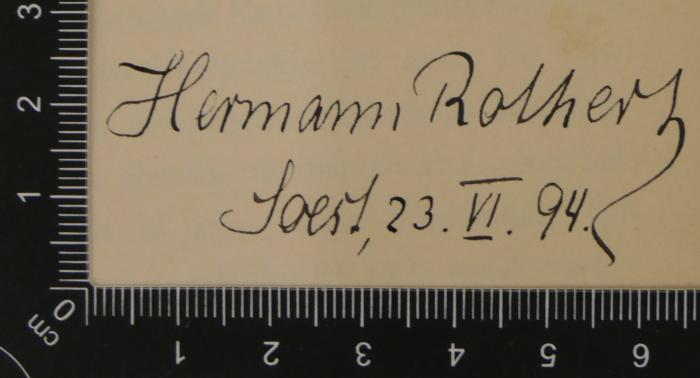 Hermann Rothert
Soest, 23. VI. 94.
3
2
1
0
cm
1 2 3 4 5 6